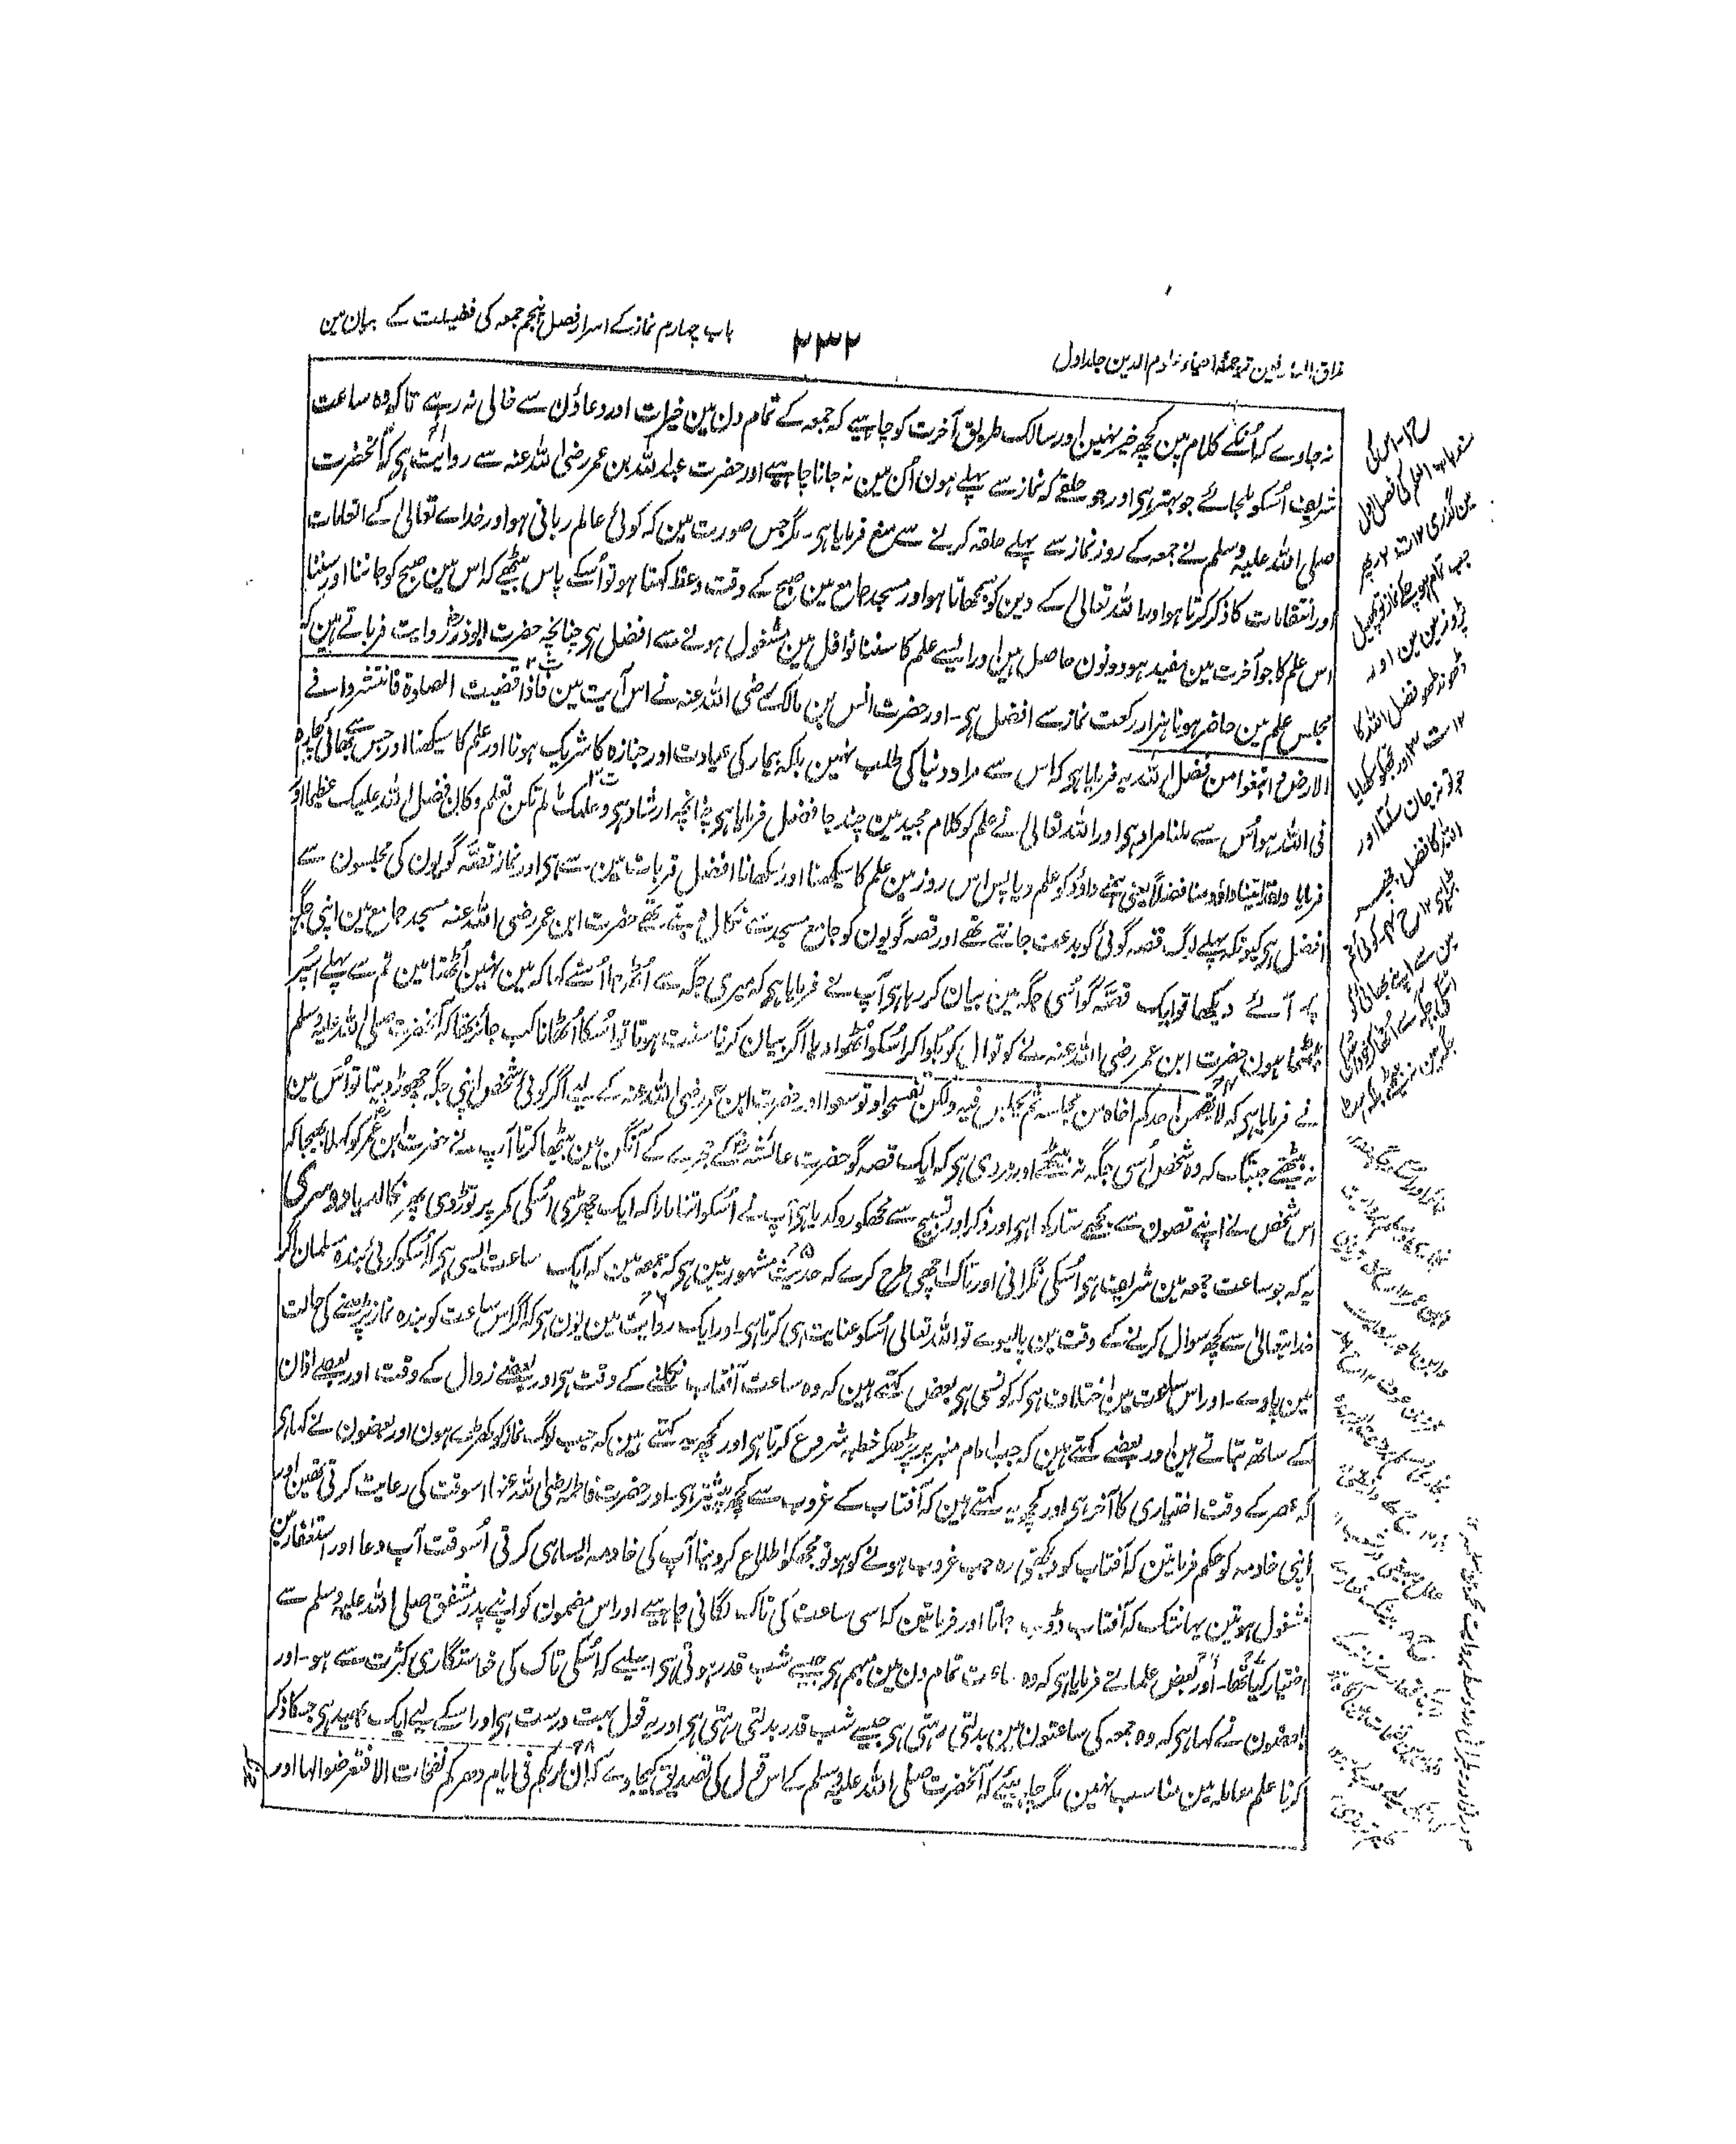 باب چہارم نماز کے اسرار فصل پنجم جمعہ کی فضیلت کے بیان مین
۲۳۲
مذاق العارفین ترجمۂ احیاء علوم الدین جلد اول
نہ جاوے کہ اُنکے کلام مین کچھ خیر نہین اور سالک طریق آخرت کو چاہیے کہ جمعہ کے تمام دن مین خیرات اور دعاؤن سے خالی نہ رہے تاکہ وہ ساعت
شریف اُسکو ملجائے جو بہتر ہی اور جو حلقے کہ نماز سے پہلے ہون اُن مین نہ جانا چاہیے اور حضرت عبد اللہ بن عمر رضی اللہ عنہ سے روایت ہی کہ آنحضرت
صلی اللہ علیہ وسلم نے جمعہ کے روز نماز سے پہلے حلقہ کرنے سے منع فرمایا ہی۔ مگر جس صورت مین کہ کوئی عالم ربانی ہو اور خداے تعالیٰ کے انعامات
اور انتقامات کا ذکر کرتا ہو اور اللہ تعالیٰ کے دین کو سمجھاتا ہو اور مسجد جامع مین صبح کے وقت وعظ کہتا ہو تو اُسکے پاس بیٹھے کہ اس مین صبح کو جانا اور سننا
اس علم کا جو آخرت مین مفید ہو دونون حاصل ہین اور ایسے علم کا سننا نوافل مین مشغول ہونے سے افضل ہی چنانچہ حضرت ابوذرؓ روایت فرماتے ہین کہ
مجلس علم مین حاضر ہونا ہزار رکعت نماز سے افضل ہی۔ اور حضرت انس بن مالک رضی اللہ عنہ نے اس آیت مین فاذا قضیت الصلوۃ فانتشروا فے
الارض وابتغوا من فضل اللہ یہ فرمایا ہی کہ اس سے مراد دنیا کی طلب نہین بلکہ بیمار کی عیادت اور جنازہ کا شریک ہونا اور علم کا سیکھنا اور جس سے بھائی چارہ
فی اللہ ہو اُس سے ملنا مراد ہی اور اللہ تعالی نے علم کو کلام مجید مین چند جا فضل فرمایا ہی چنانچہ ارشاد ہی وعلمک ما لم تکن تعلم وکان فضل اللہ علیک عظیما اور
فرمایا ولقد اٰتینا داؤد منا فضلًا یعنی ہمنے داؤد کو علم دیا پس اس روز مین علم کا سیکھنا اور سکھانا افضل قربات مین سے ہی اور نماز قصّہ گویون کی مجلسون سے
افضل ہی کیونکہ پہلے لوگ قصہ گوئی کو بدعت جانتے تھے اور قصہ گویون کو جامع مسجد سے نکال دیتے تھے حضرت ابن عمر رضی اللہ عنہ مسجد جامع مین اپنی جگہ
پر آئے دیکھا تو ایک قصّہ گو اُسی جگہ مین بیان کر رہا ہی آپ نے فرمایا ہی کہ میری جگہ سے اُٹھ جا اُسنے کہا کہ مین نہین اُٹھتا مین تم سے پہلے اسپر
بیٹھا ہون حضرت ابن عمر رضی اللہ عنہ نے کوتوال کو بُلوا کر اُسکو اُٹھوا دیا اگر بیان کرنا سنت ہوتا تو اُسکا اُٹھانا کب جائز تھا کہ آنحضرت صلی اللہ علیہ وسلم
نے فرمایا ہی کہ لا یقیمن احدکم اخاہ من مجلسہ ثم یجلس فیہ ولکن تفسحوا وتوسعوا اور حضرت ابن عمر رضی اللہ عنہ کے لیے اگر کوئی شخص اپنی جگہ چھوڑ دیتا تو اُس مین
نہ بیٹھتے جبتک کہ وہ شخص اُسی جگہ نہ بیٹھے اور مروی ہی کہ ایک قصہ گو حضرت عائشہؓ کے حجرے کے آنگن مین بیٹھا کرتا آپ نے حضرت ابن عمرؓ کو کہلا بھیجا کہ
اس شخص نے اپنے قصون سے مجھے ستا رکھا ہی اور ذکر اور تسبیح سے مجھکو روکدیا ہی آپ نے اُسکو اتنا مارا کہ ایک چھڑی اُسکی کمر پر توڑ دی پھر نکالدیا دوسری
یہ کہ جو ساعت جمعہ مین شریف ہی اُسکی نگرانی اور تاک اچھی طرح کرے کہ حدیث مشہور مین ہی کہ جمعہ مین کہ ایک ساعت ایسی ہی کہ اُسکو کوئی بندہ مسلمان اگر
خدایتعالیٰ سے کچھ سوال کرنے کے وقت مین پا لیوے تو اللہ تعالی اُسکو عنایت ہی کرتا ہی۔ اور ایک روایت مین یون ہی کہ اگر اس ساعت کو بندہ نماز پڑھنے کی حالت
مین پاوے۔ اور اس ساعت مین اختلاف ہی کہ کونسی ہی بعض کہتے ہین کہ وہ ساعت آفتاب نکلنے کے وقت ہی اور بعضے زوال کے وقت اور بعضے اذان
کے ساتھ بتاتے ہین اور بعضے کہتے ہین کہ جب امام منبر پر چڑھکر خطبہ شروع کرتا ہی اور کچھ یہ کہتے ہین کہ جب لوگ نماز کو کھڑے ہون اور بعضون نے کہا ہی
کہ عصر کے وقت اختیاری کا آخر ہی اور کچھ یہ کہتے ہین کہ آفتاب کے غروب سے کچھ پیشتر ہی۔ اور حضرت فاطمہ رضی اللہ عنہا اسوقت کی رعایت کرتی تھین اور
اپنی خادمہ کو حکم فرماتین کہ آفتاب کو دیکھتی رہ جب غروب ہونے کو ہو تو مجھکو اطلاع کر دینا آپ کی خادمہ ایسا ہی کرتی اُسوقت آپ دعا اور استغفار مین
مشغول ہوتین یہانتک کہ آفتاب ڈوب جاتا اور فرماتین کہ اسی ساعت کی تاک لگانی چاہیے اور اس مضمون کو اپنے پدر مشفق صلی اللہ علیہ وسلم سے
اختیار کیا تھا۔ اور بعض علما نے فرمایا ہی کہ وہ ساعت تمام دن مین مبہم ہی جیسے شب قدر ہوتی ہی اسلیے کہ اُسکی تاک کی خواستگاری کثرت سے ہو۔ اور
بعضون نے کہا ہی کہ وہ جمعہ کی ساعتون مین بدلتی رہتی ہی جیسے شب قدر بدلتی رہتی ہی اور یہ قول بہت درست ہی اور اسکے لیے ایک بھید ہی جسکا ذکر
کرنا علم معاملہ مین مناسب نہین مگر چاہیے کہ آنحضرت صلی اللہ علیہ وسلم کے اس قول کی تصدیق کیجاوے کہ ان لربکم فی ایام دھرکم نفحات الا فتعرضوا لہا اور
سند باب العلم کی فصل اول
مین گذری ۱۲
جب تمام ہو چکے نماز تو پھیل
پڑو زمین مین اور
ڈھونڈھو فضل اللہ کا
۱۲ اور تجکو سکھایا
جو تو نہ جان سکتا اور
اللہ کا فضل تجھپر
بڑا ہی ۱۲ کوئی تم
مین سے اپنے بھائی کو
اسکی جگہ سے اُٹھا کر خود اسکی
جگہ مین نہ بیٹھے بلکہ ہٹ